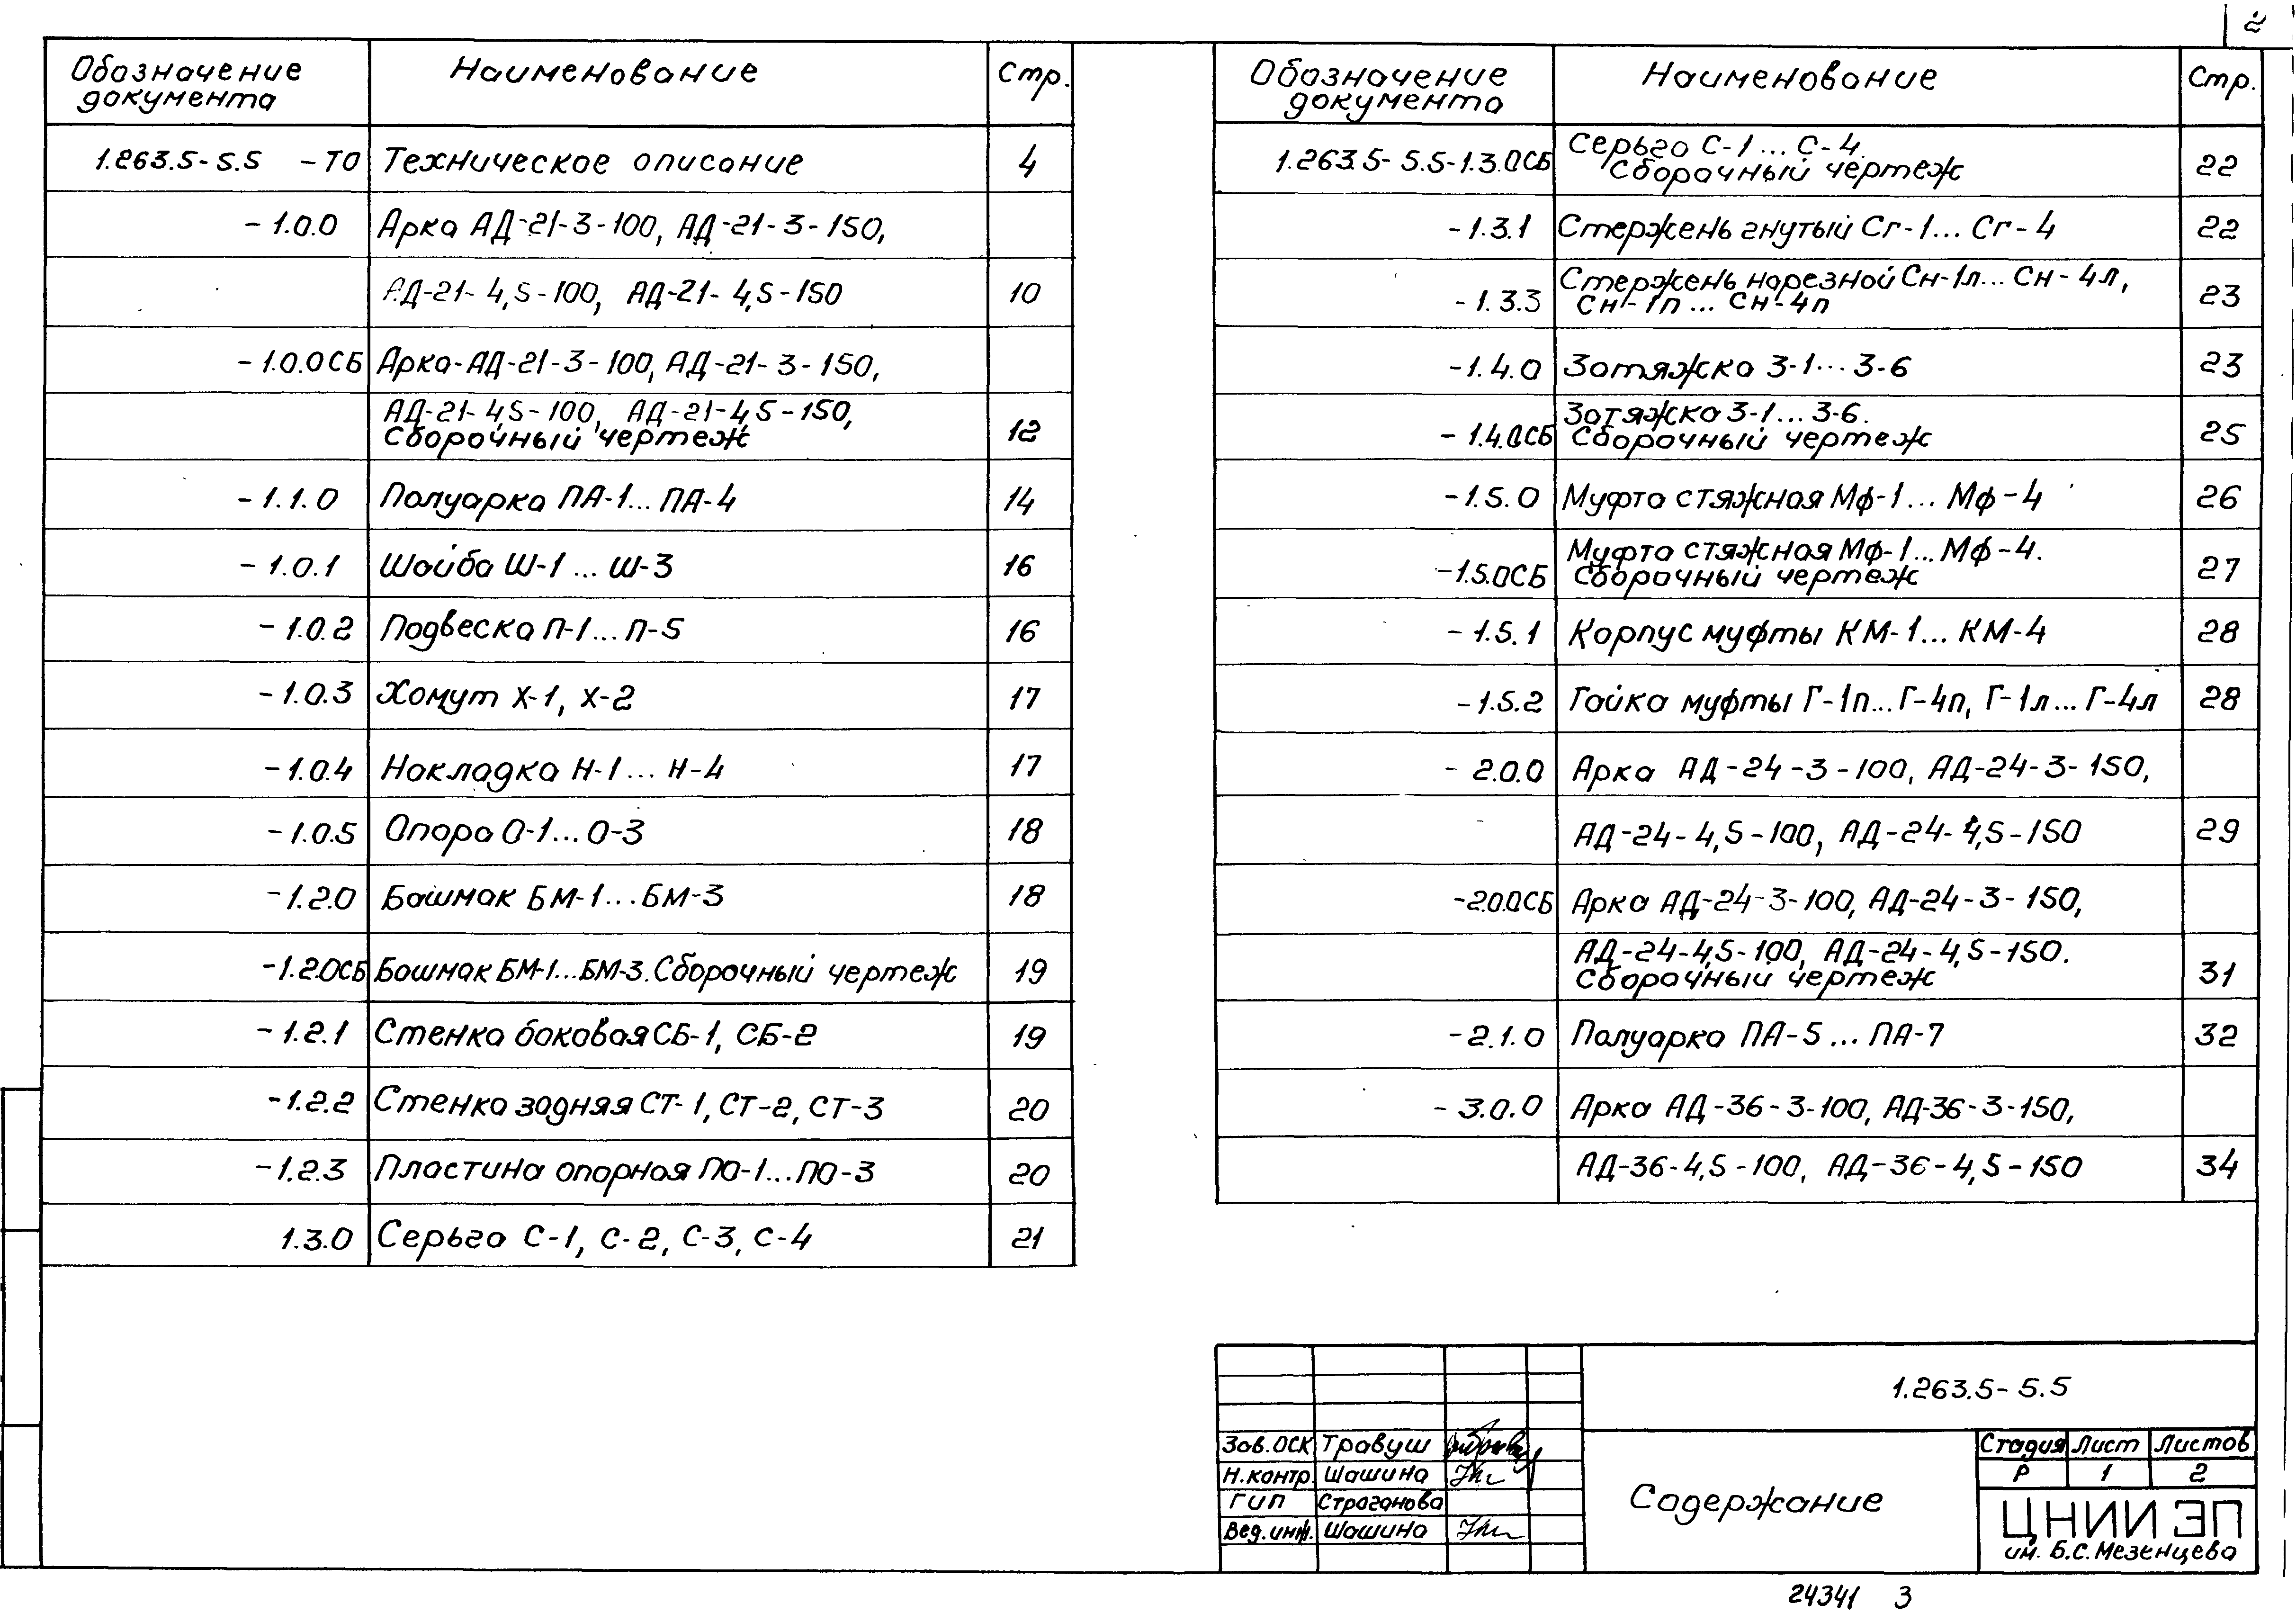 2
Обозначение документа Наименование Стр.
1.263.5-5.5 -ТО Техническое описание 4
-1.0.0 Арка АД-21-3-100, АД-21-3-150,
АД-21-4,5-100, АД-21-4,5-150 10
-1.0.0СБ Арка-АД-21-3-100, АД-21-3-150,
АД-21-4,5-100, АД-21-4,5-150,
Сборочный чертеж 12
-1.1.0 Полуарка ПА-1...ПА-4 14
-1.0.1 Шайба Ш-1...Ш-3 16
-1.0.2 Подвеска П-1...П-5 16
-1.0.3 Хомут Х-1, Х-2 17
-1.0.4 Накладка Н-1...Н-4 17
-1.0.5 Опора О-1...О-3 18
-1.2.0 Башмак БМ-1...БМ-3 18
-1.2.0СБ Башмак БМ-1...БМ-3. Сборочный чертеж 19
-1.2.1 Стенка боковая СБ-1, СБ-2 19
-1.2.2 Стенка задняя СТ-1, СТ-2, СТ-3 20
-1.2.3 Пластина опорная ПО-1...ПО-3 20
1.3.0 Серьга С-1, С-2, С-3, С-4 21
Обозначение документа Наименование Стр.
1.263.5-5.5-1.3.0СБ Серьга С-1...С-4.
Сборочный чертеж 22
-1.3.1 Стержень гнутый Сг-1...Сг-4 22
-1.3.3 Стержень нарезной Сн-1л...Сн-4л,
Сн-1п...Сн-4п 23
-1.4.0 Затяжка З-1...З-6 23
-1.4.0СБ Затяжка З-1...З-6.
Сборочный чертеж 25
-1.5.0 Муфта стяжная Мф-1...Мф-4 26
-1.5.0СБ Муфта стяжная Мф-1...Мф-4.
Сборочный чертеж 27
-1.5.1 Корпус муфты КМ-1...КМ-4 28
-1.5.2 Гайка муфты Г-1п...Г-4п, Г-1л...Г-4л 28
-2.0.0 Арка АД-24-3-100, АД-24-3-150,
АД-24-4,5-100, АД-24-4,5-150 29
-2.0.0СБ Арка АД-24-3-100, АД-24-3-150,
АД-24-4,5-100, АД-24-4,5-150.
Сборочный чертеж 31
-2.1.0 Полуарка ПА-5...ПА-7 32
-3.0.0 Арка АД-36-3-100, АД-36-3-150,
АД-36-4,5-100, АД-36-4,5-150 34
1.263.5-5.5
Зав.ОСК Травуш
Н.контр. Шашина
ГИП Страганова
Вед.инж. Шашина
Содержание
Стадия Лист Листов
Р 1 2
ЦНИИЭП
им. Б.С.Мезенцева
24341 3